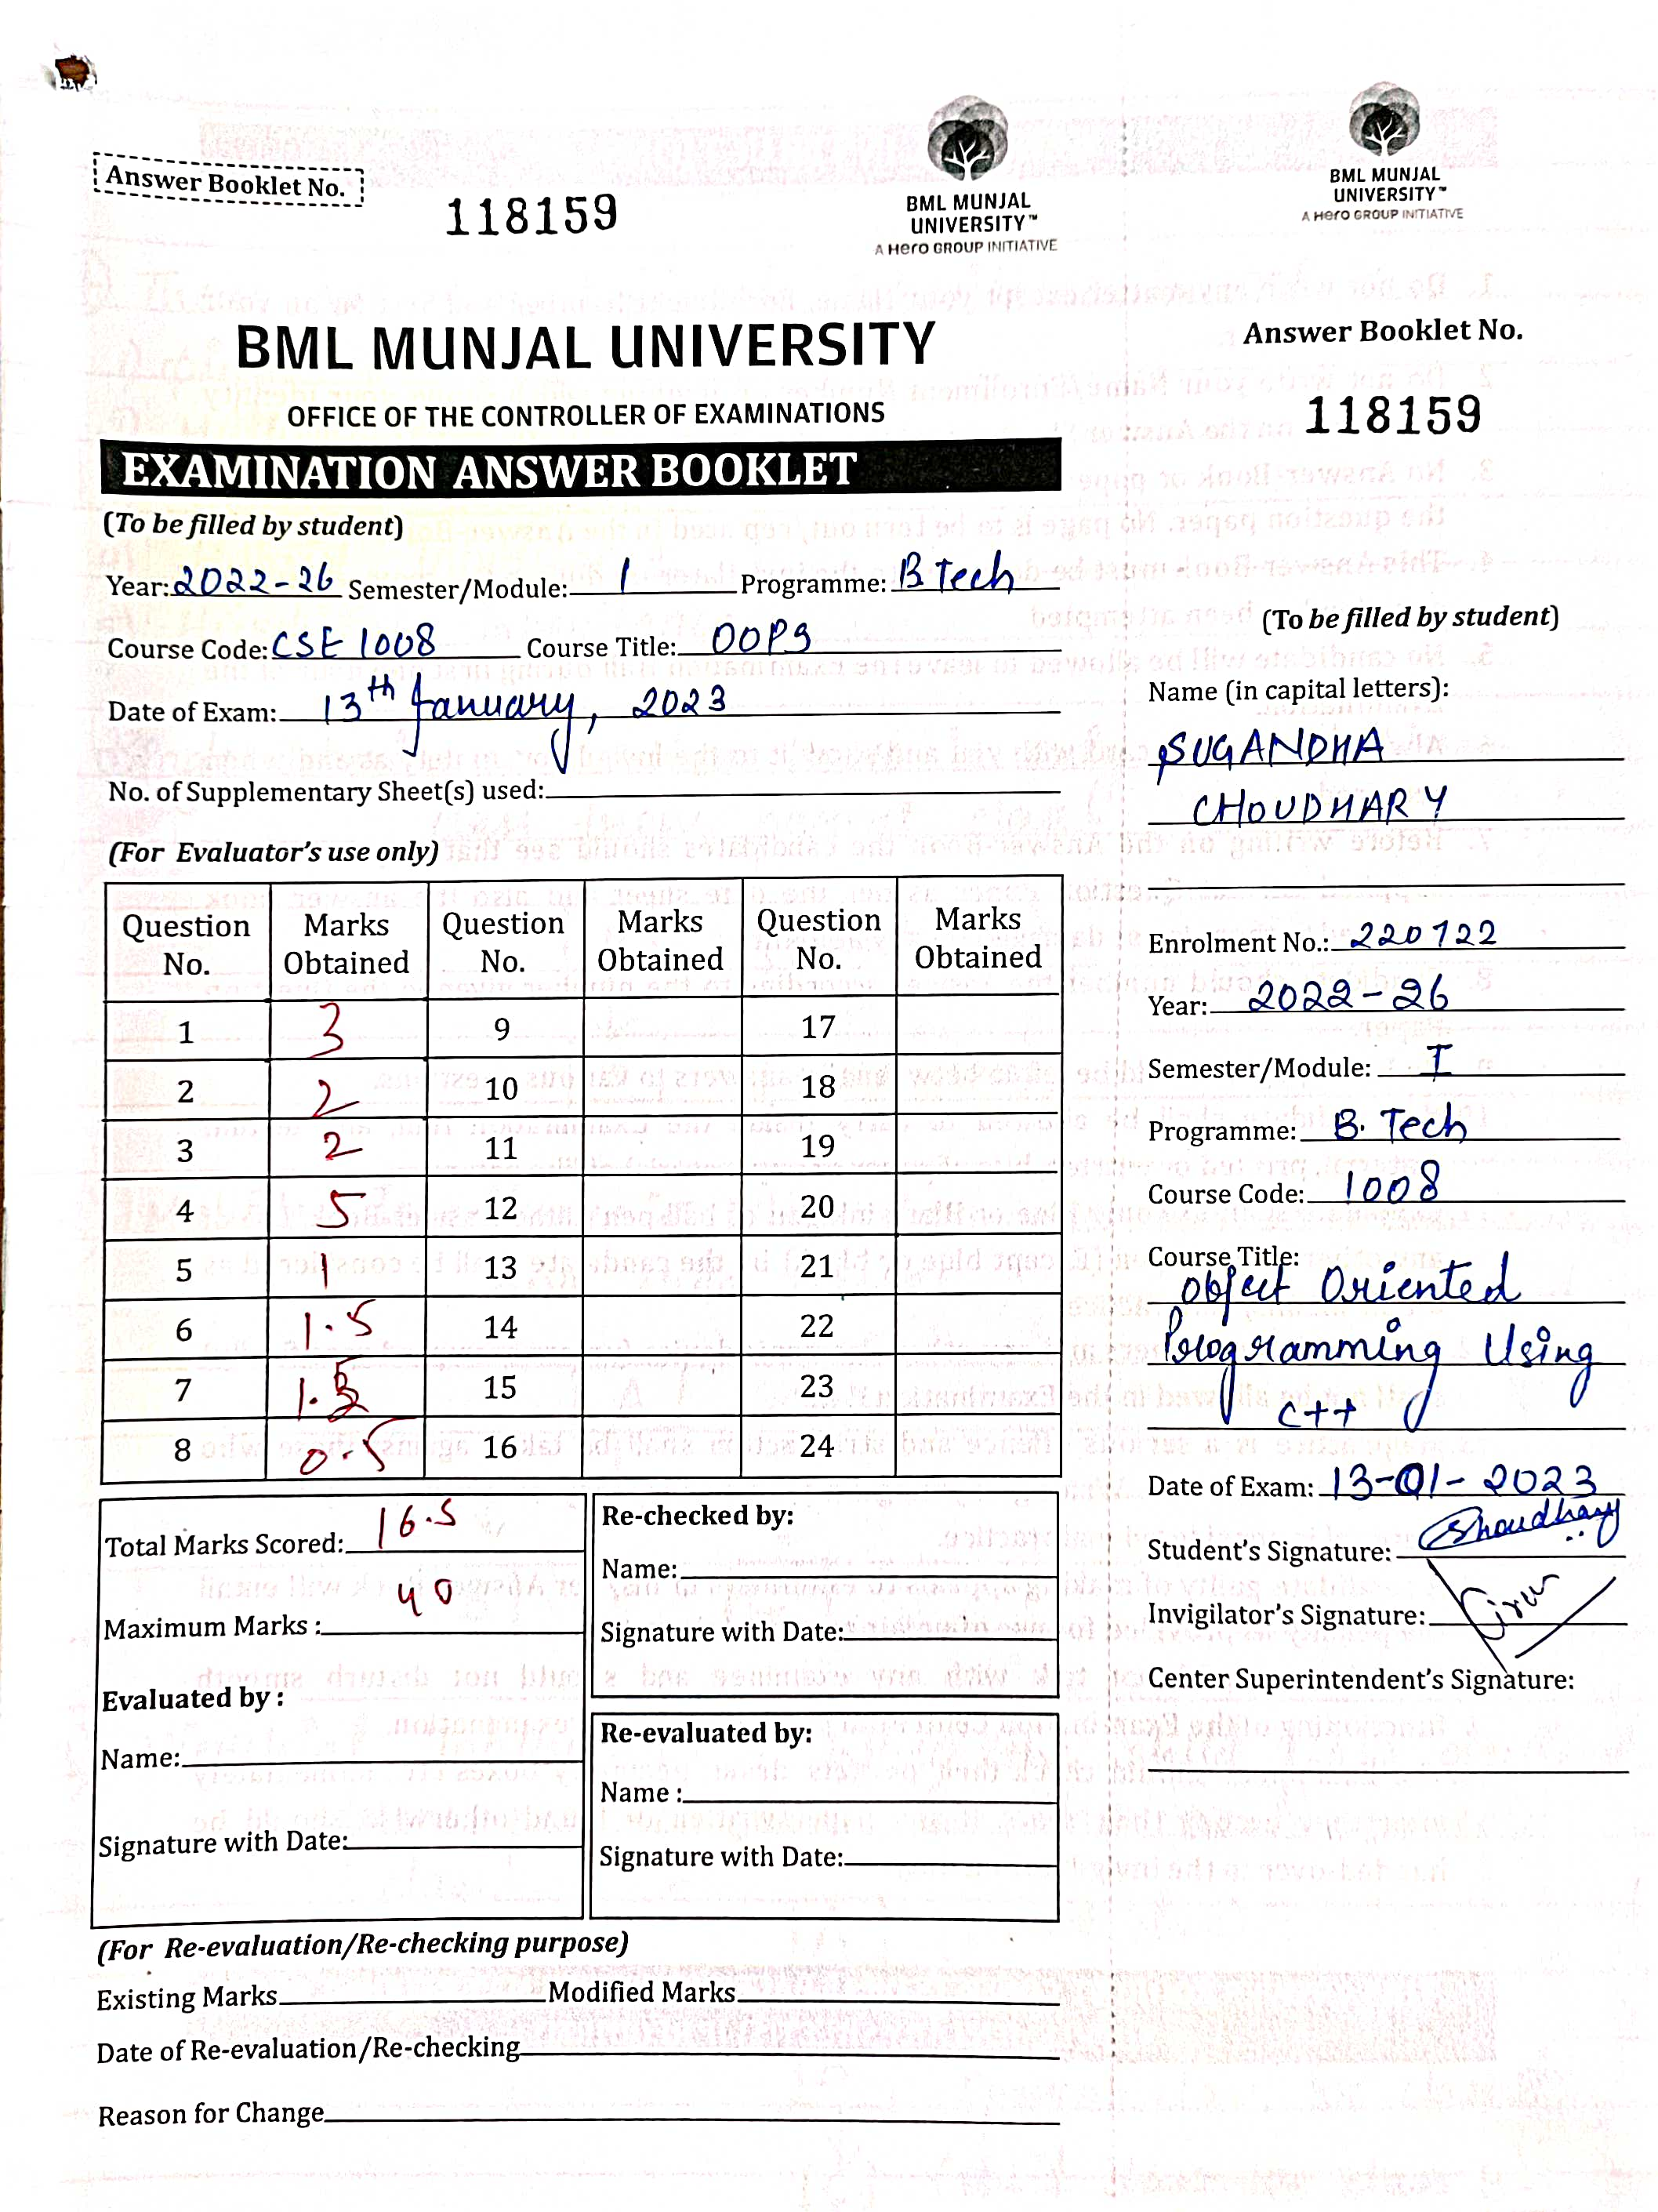 Answer Booklet No.
118159
BML MUNJAL
UNIVERSITY™
A Hero GROUP INITIATIVE
BML MUNJAL UNIVERSITY
OFFICE OF THE CONTROLLER OF EXAMINATIONS
EXAMINATION ANSWER BOOKLET
(To be filled by student)
Year: 2022-26 Semester/Module: 1 Programme: B Tech
Course Code: CSE 1008 Course Title: OOPS
Date of Exam: 13th January, 2023
No. of Supplementary Sheet(s) used:
(For Evaluator's use only)
Question No. Marks Obtained Question No. Marks Obtained Question No. Marks Obtained
1 3 9 17
2 2 10 18
3 2 11 19
4 5 12 20
5 1 13 21
6 1.5 14 22
7 1.5 15 23
8 0.5 16 24
Total Marks Scored: 16.5
Maximum Marks : 40
Evaluated by :
Name:
Signature with Date:
Re-checked by:
Name:
Signature with Date:
Re-evaluated by:
Name :
Signature with Date:
(For Re-evaluation/Re-checking purpose)
Existing Marks Modified Marks
Date of Re-evaluation/Re-checking
Reason for Change
BML MUNJAL
UNIVERSITY™
A Hero GROUP INITIATIVE
Answer Booklet No.
118159
(To be filled by student)
Name (in capital letters):
SUGANDHA
CHOUDHARY
Enrolment No.: 220722
Year: 2022-26
Semester/Module: I
Programme: B. Tech
Course Code: 1008
Course Title:
Object Oriented
Programming Using
C++
Date of Exam: 13-01-2023
Student's Signature: Choudhary
Invigilator's Signature:
Center Superintendent's Signature: